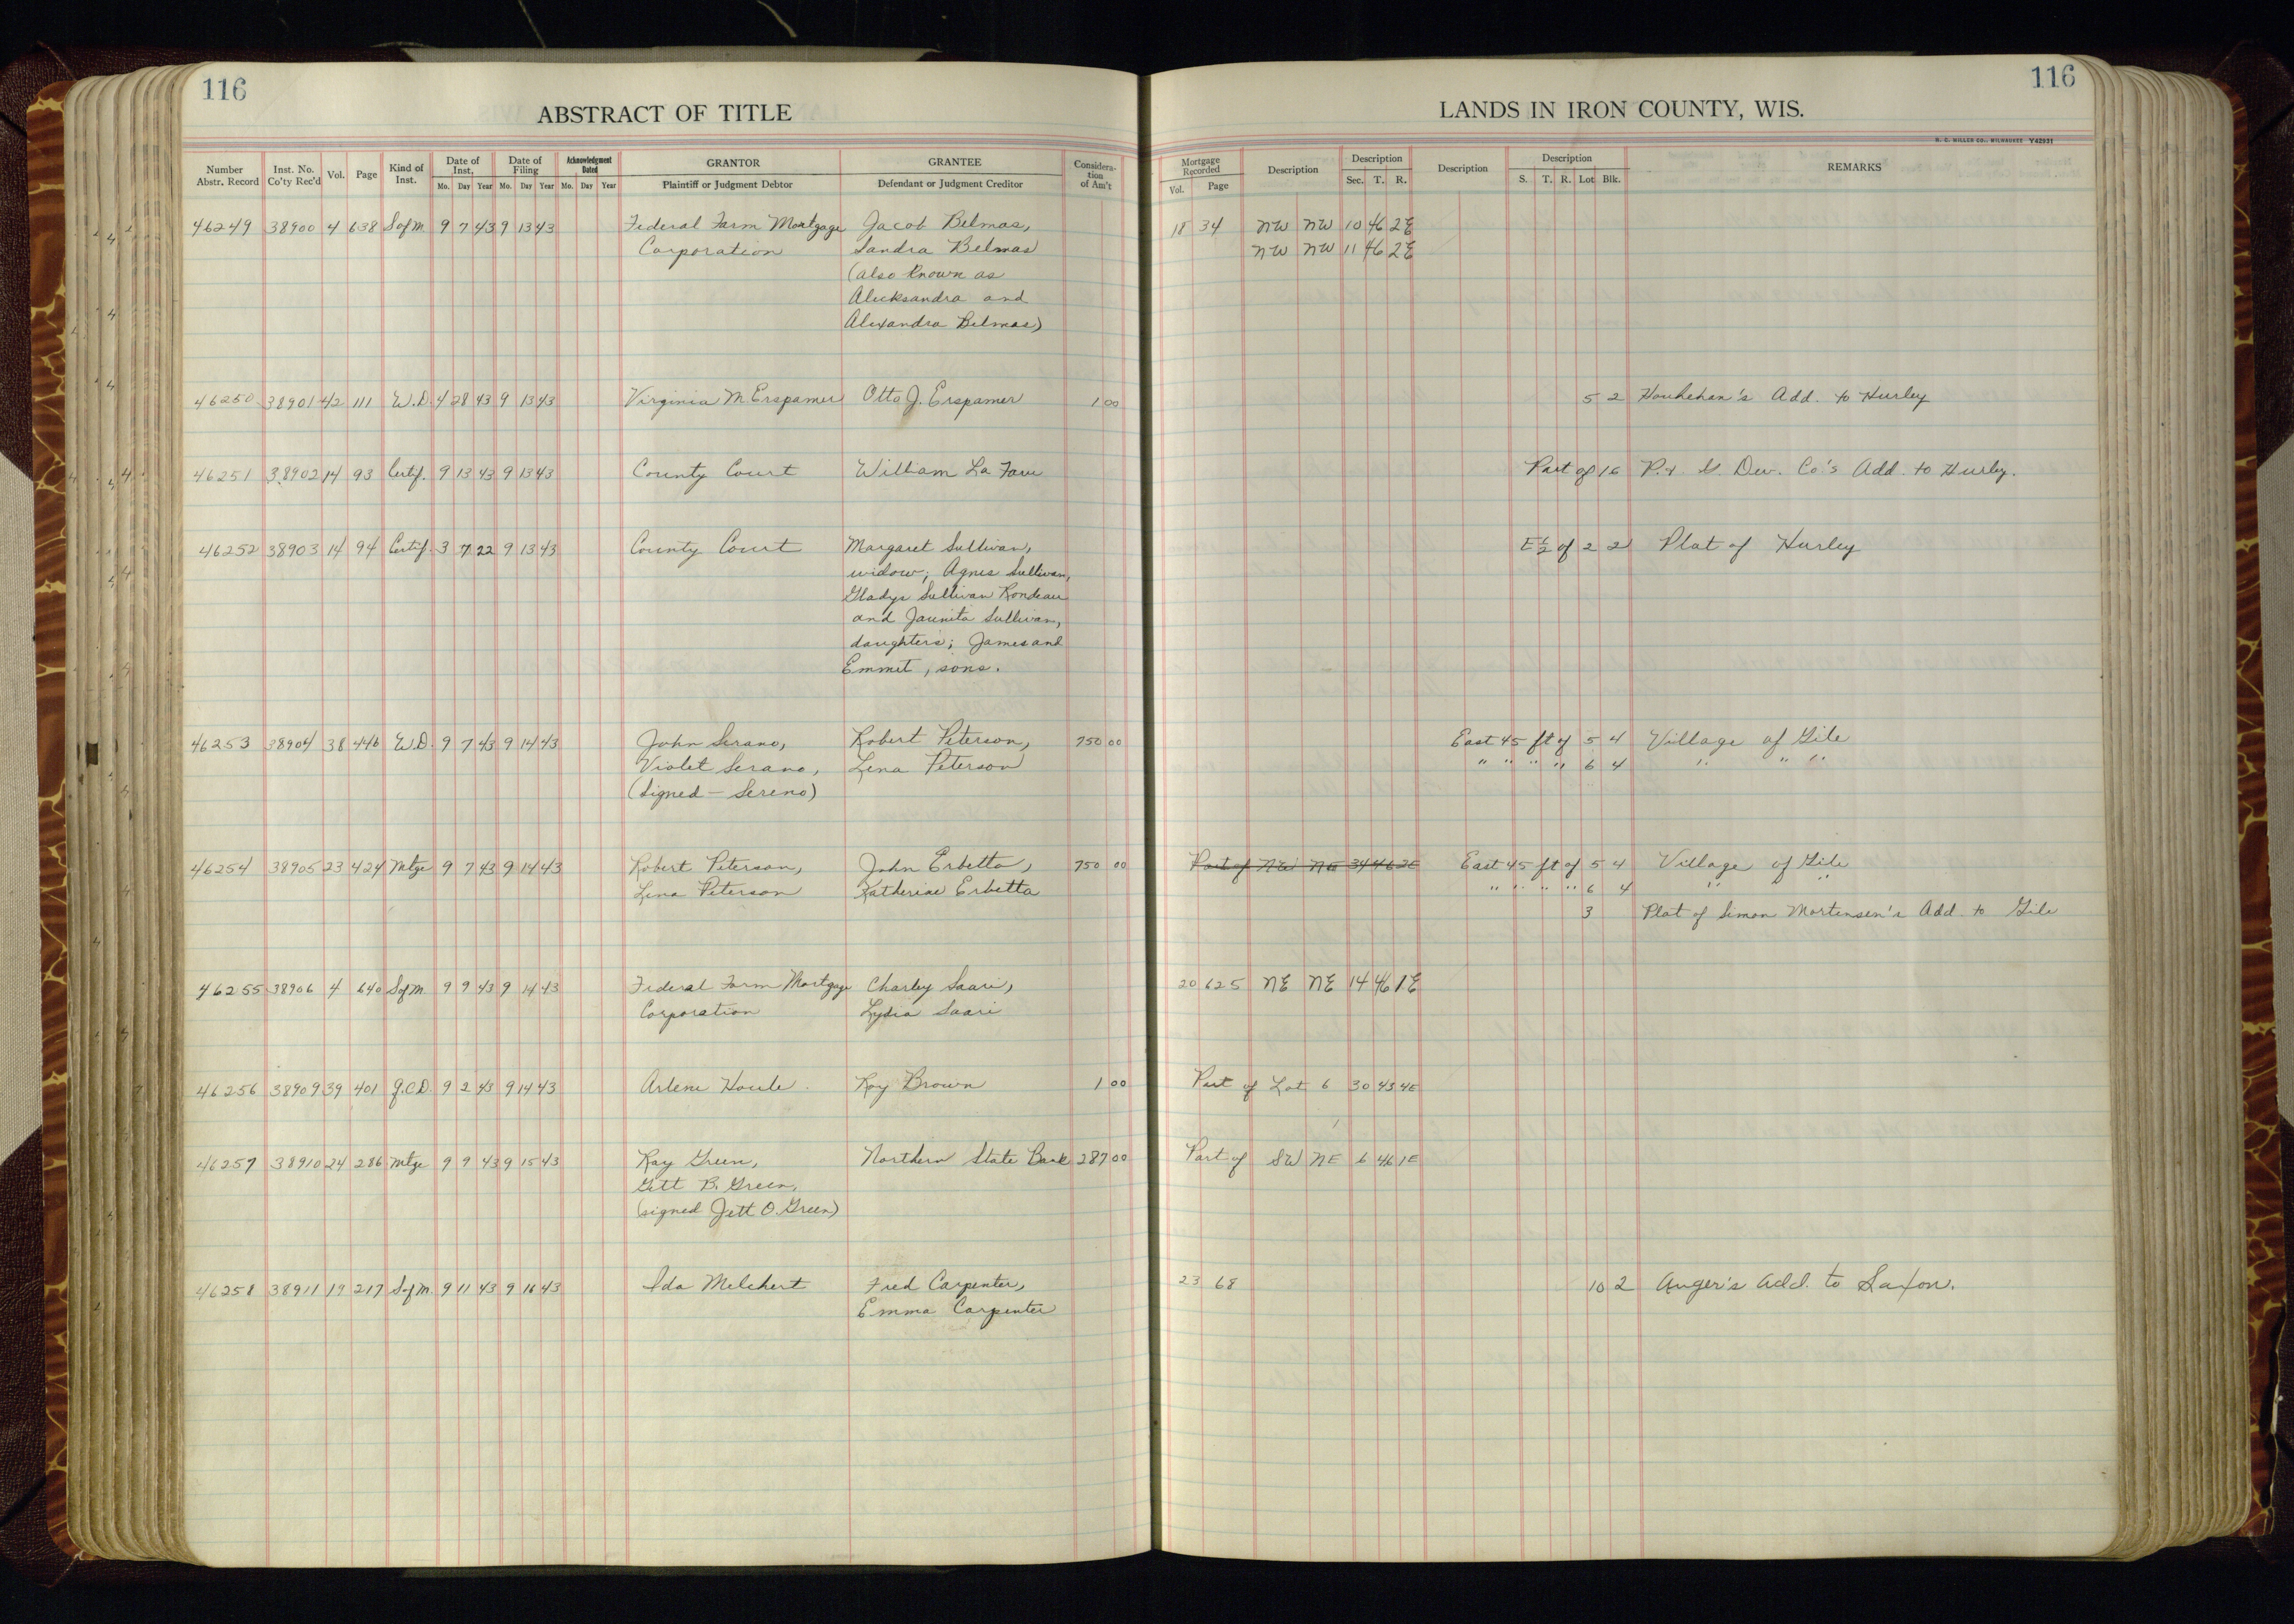 116
ABSTRACT OF TITLE
Number Abstr. Record Inst. No. Co'ty Rec'd Vol. Page Kind of Inst. Date of Inst. Mo. Day Year Date of Filing Mo. Day Year Acknowledgment Dated Mo. Day Year GRANTOR Plaintiff or Judgment Debtor GRANTEE Defendant or Judgment Creditor Considera-tion of Am't
46249 38900 4 638 S of M 9 7 43 9 13 43 Federal Farm Mortgage Jacob Belmas,
Corporation Sandra Belmas
(also known as
Alecksandra and
Alexandra Belmas)
46250 38901 42 111 W.D. 4 28 43 9 13 43 Virginia M. Erspamer Otto J. Erspamer 1 00
46251 38902 14 93 Certif. 9 13 43 9 13 43 County Court William La Fave
46252 38903 14 94 Certif. 3 7 22 9 13 43 County Court Margaret Sullivan,
widow; Agnes Sullivan,
Gladys Sullivan Rondeau
and Jaunita Sullivan,
daughters; James and
Emmet, sons.
46253 38904 38 446 W.D. 9 7 43 9 14 43 John Serano, Robert Peterson, 750 00
Violet Serano, Lena Peterson
(Signed - Sereno)
46254 38905 23 424 Mtge 9 7 43 9 14 43 Robert Peterson, John Erbetta, 750 00
Lena Peterson Katherine Erbetta
46255 38906 4 640 S of M 9 9 43 9 14 43 Federal Farm Mortgage Charley Saari,
Corporation Lydia Saari
46256 38909 39 401 Q.C.D. 9 2 43 9 14 43 Arlene Houle Roy Brown 1 00
46257 38910 24 286 Mtge 9 9 43 9 15 43 Ray Green, Northern State Bank 287 00
Gett B. Green,
(signed Jett O. Green)
46258 38911 19 217 S of M. 9 11 43 9 16 43 Ida Melchert Fred Carpenter,
Emma Carpenter
116
LANDS IN IRON COUNTY, WIS.
H. C. MILLER CO., MILWAUKEE Y42931
Mortgage Recorded Vol. Page Description Description Sec. T. R. Description Description S. T. R. Lot Blk. REMARKS
18 34 NW NW 10 46 2E
NW NW 11 46 2E
5 2 Houhehan's Add. to Hurley
Part of 16 P. & S. Dev. Co.'s Add. to Hurley.
E½ of 2 2 Plat of Hurley
East 45 ft of 5 4 Village of Gile
" " " " 6 4 " " "
Part of NE NE 34 46 2E East 45 ft of 5 4 Village of Gile
" " " " 6 4 " "
3 Plat of Simon Mortensen's Add. to Gile
20 625 NE NE 14 46 1E
Part of Lot 6 30 43 4E
Part of SW NE 6 46 1E
23 68 10 2 Auger's Add. to Saxon.